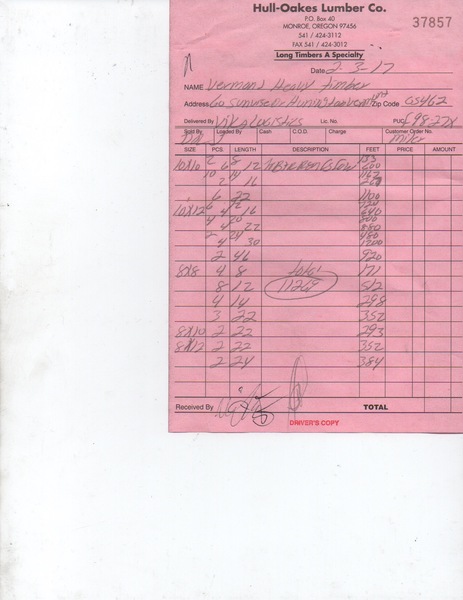 Hull-Oakes Lumber Co.
P.O. Box 40
MONROE, OREGON 97456
541 / 424-3112
FAX 541 / 424-3012
37857
Long Timbers A Specialty
Date 2-3-17
NAME Vermont Heavy Timber
Address Huntington Zip Code 05462
Delivered By Logistics Lic. No. PUC
Sold By Loaded By Cash C.O.D. Charge Customer Order No.
Mike
SIZE PCS. LENGTH DESCRIPTION FEET PRICE AMOUNT
10x10 2 8 133
6 12 600
10 14 1167
2 16
6 22 1100
10x12 6 12 720
4 16 640
4 20 800
4 22 880
2 24 480
4 30 1200
2 46 920
8x8 4 8 total 171
8 12 11269 512
4 14 298
3 22 352
8x10 2 22 293
8x12 2 22 352
2 24 384
Received By TOTAL
DRIVER'S COPY